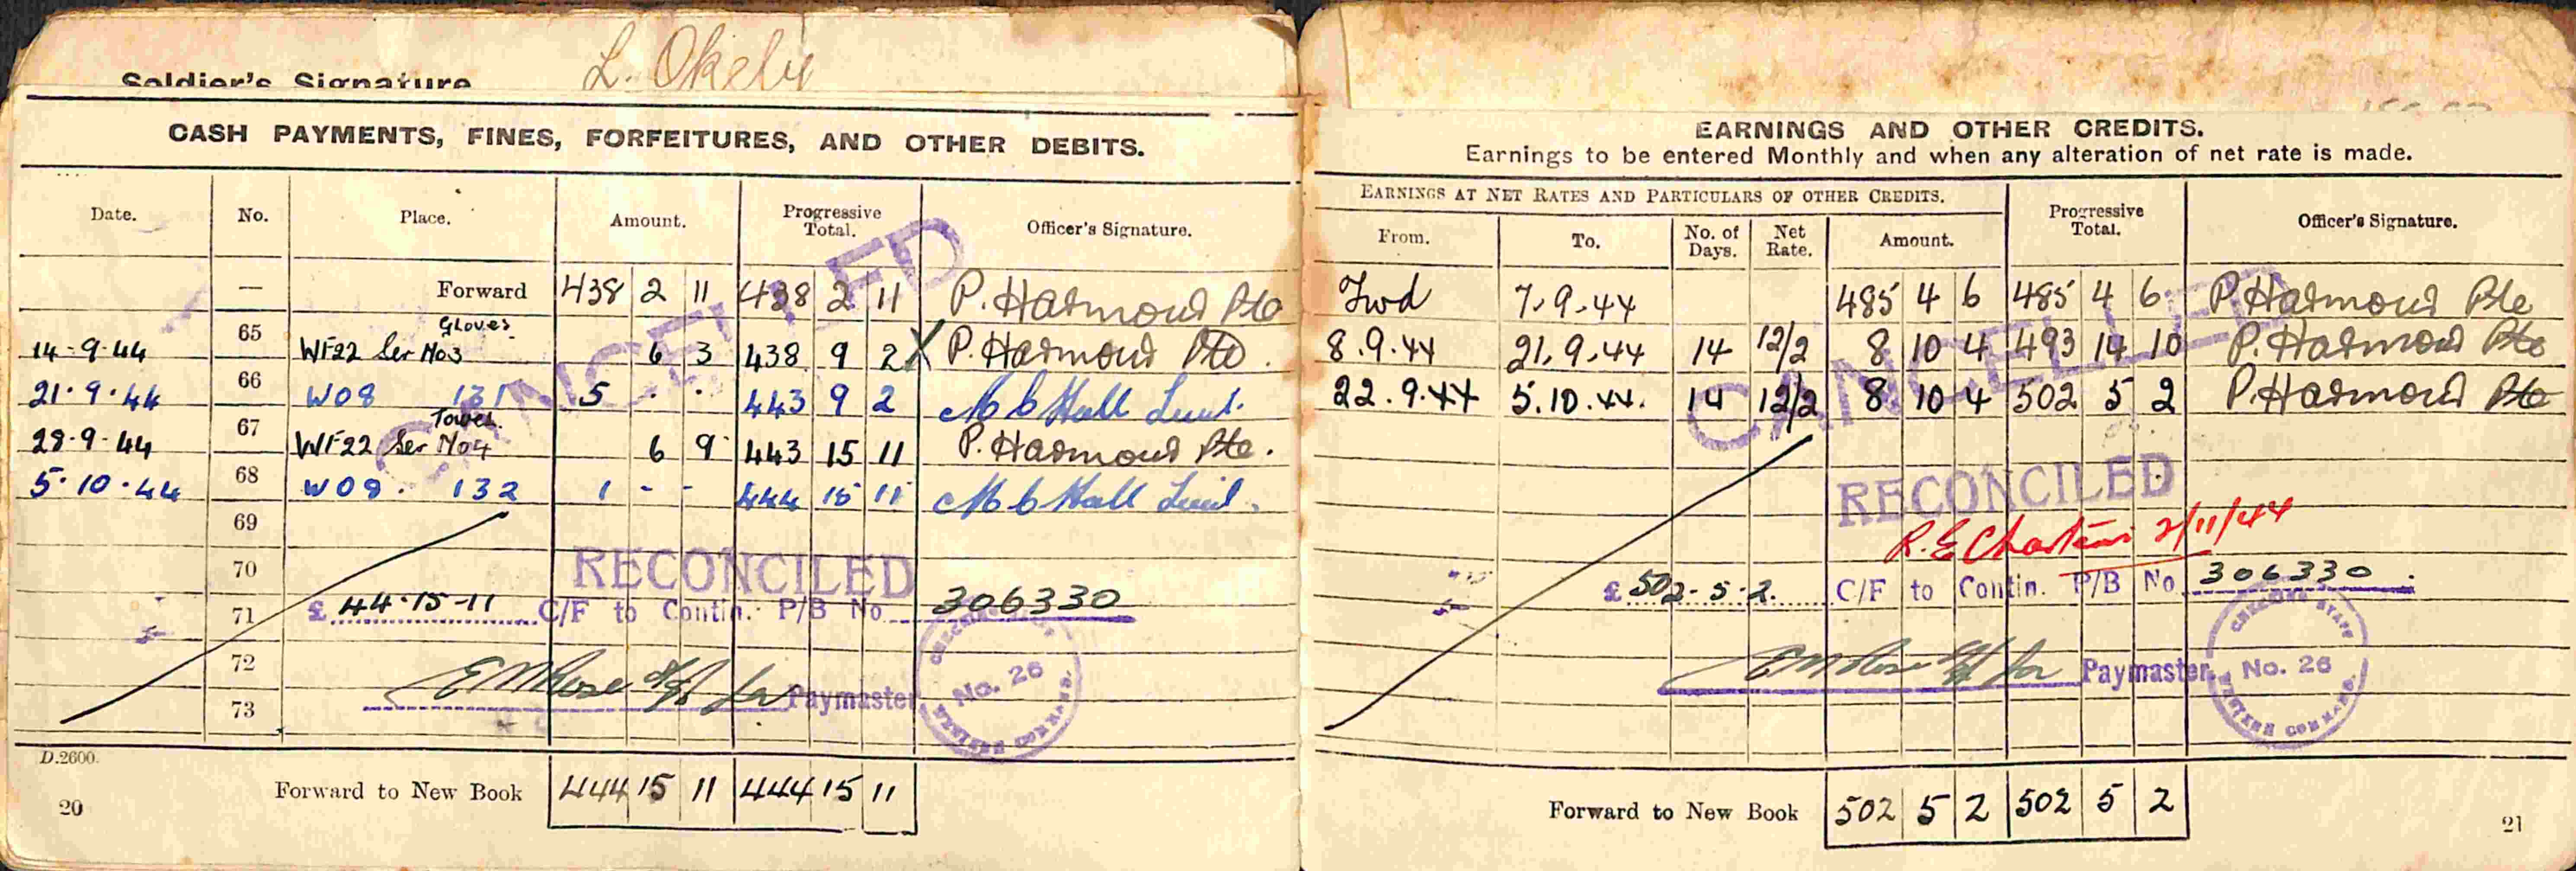 Soldier's Signature L. Okely
CASH PAYMENTS, FINES, FORFEITURES, AND OTHER DEBITS.
Date. No. Place. Amount. Progressive Total. Officer's Signature.
— Forward 438 2 11 438 2 11 P. Harmond Pte
Gloves
14-9-44 65 WF22 Ser No3 6 3 438 9 2 X P. Harmond Pte.
21·9·44 66 W08 131 5 · · 443 9 2 M C Hall Lieut.
Towel
28-9-44 67 WF22 Ser No4 6 9 443 15 11 P. Harmond Pte.
5·10·44 68 W08. 132 1 - - 444 15 11 M C Hall Lieut.
69
70
71
72
73
CANCELLED
RECONCILED
£ 44-15-11 C/F to Contin. P/B No. 306330
E M Rose for Paymaster
CHECKING STAFF No. 26 WESTERN COMMAND.
D.2600.
Forward to New Book 444 15 11 444 15 11
20
EARNINGS AND OTHER CREDITS.
Earnings to be entered Monthly and when any alteration of net rate is made.
EARNINGS AT NET RATES AND PARTICULARS OF OTHER CREDITS.
From. To. No. of Days. Net Rate. Amount. Progressive Total. Officer's Signature.
Fwd 7.9.44 485 4 6 485 4 6 P Harmond Pte
8.9.44 21.9.44 14 12/2 8 10 4 493 14 10 P. Harmond Pte
22.9.44 5.10.44. 14 12/2 8 10 4 502 5 2 P Harmond Pte
CANCELLED
RECONCILED
R.E 2/11/44
£ 502-5-2. C/F to Contin. P/B No. 306330.
E M Rose for Paymaster
CHECKING STAFF No. 26 WESTERN COMMAND.
Forward to New Book 502 5 2 502 5 2
21